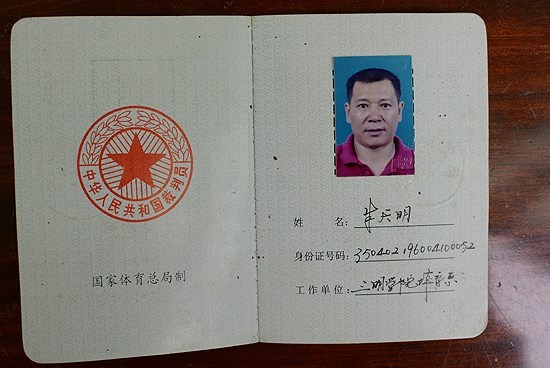 中华人民共和国裁判员
国家体育总局制
姓 名: 明
身份证号码: 350402196004100052
工作单位: 三明学院体育系